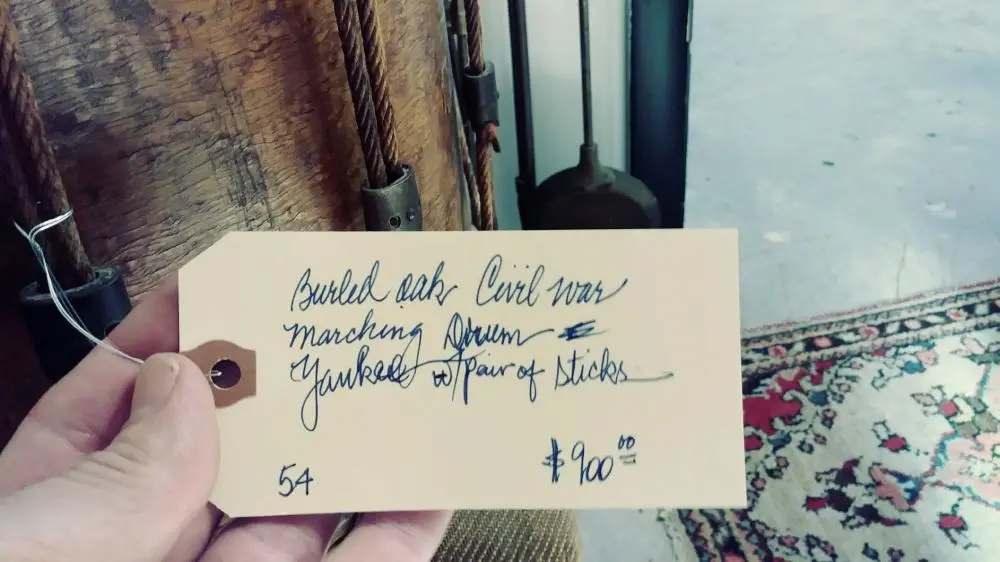 Burled oak Civil war
Marching Drum
Yankee w/ pair of sticks
54
$900.00